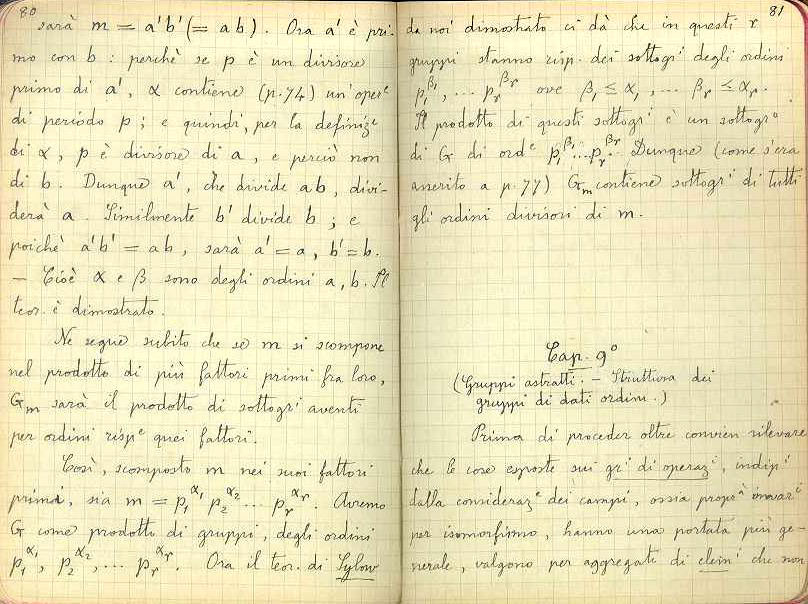 80
sarà m = a'b' (= ab). Ora a' è pri-
mo con b: perchè se p è un divisore
primo di a', α contiene (p. 74) un'oper^e
di periodo p; e quindi, per la definiz^e
di α, p è divisore di a, e perciò non
di b. Dunque a', che divide ab, divi-
derà a. Similmente b' divide b; e
poichè a'b' = ab, sarà a' = a, b' = b.
— Cioè α e β sono degli ordini a, b. Il
teor. è dimostrato.
Ne segue subito che se m si scompone
nel prodotto di più fattori primi fra loro,
G_m sarà il prodotto di sottogr^i aventi
per ordini risp^e quei fattori.
Così, scomposto m nei suoi fattori
primi, sia m = p_1^{α_1} p_2^{α_2} ... p_r^{α_r}. Avremo
G come prodotto di gruppi, degli ordini
p_1^{α_1}, p_2^{α_2}, ... p_r^{α_r}. Ora il teor. di Sylow
81
da noi dimostrato ci dà che in questi r
gruppi stanno risp. dei sottogr^i degli ordini
p_1^{β_1}, ... p_r^{β_r} ove β_1 ≤ α_1, ... β_r ≤ α_r.
Il prodotto di questi sottogr^i è un sottogr^o
di G di ord^e p_1^{β_1} ... p_r^{β_r}. Dunque (come s'era
asserito a p. 77) G_m contiene sottogr^i di tutti
gli ordini divisori di m.
Cap. 9°
(Gruppi astratti. — Struttura dei
gruppi di dati ordini.)
Prima di proceder oltre convien rilevare
che le cose esposte sui gr^i di operaz^i, indip^i
dalla consideraz^e dei campi, ossia propr^à invar^i
per isomorfismo, hanno una portata più ge-
nerale, valgono per aggregati di elem^i che non